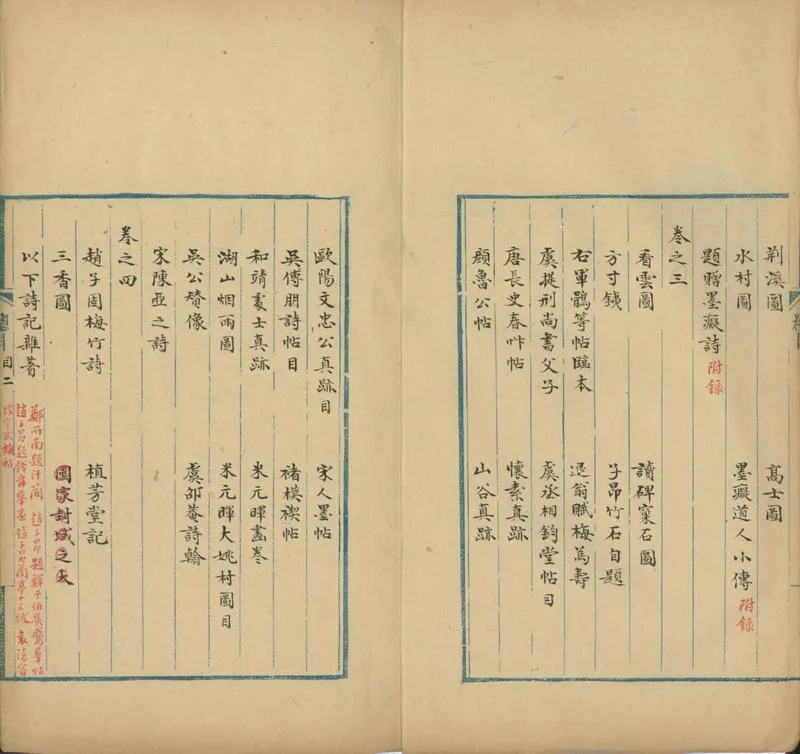 荆溪圖 髙士圖
水村圖 墨癡道人小傳 附錄
題贈墨癡詩 附錄
卷之三
看雲圖 讀碑窠石圖
方寸鐵 子昂竹石自題
右軍鵝等帖臨本 退翁賦梅為壽
虞提刑尚書父子 虞丞相鈞堂帖目
唐長史春艸帖 懷素真跡
顏魯公帖 山谷真跡
歐陽文忠公真跡目 宋人墨帖
吳傅朋詩帖目 褚模禊帖
和靖處士真跡 米元暉畫卷
湖山烟雨圖 米元暉大姚村圖目
吳公替像 虞邵菴詩翰
宋陳亞之詩
卷之四
趙子固梅竹詩 植芳堂記
三香圖 國家封域之大
以下詩記雜著
鄭所南題汗簡 趙子昂題鮮于伯幾鵞羣帖
趙子昂題錢舜舉畫 趙子昂蘭亭十三跋
目二